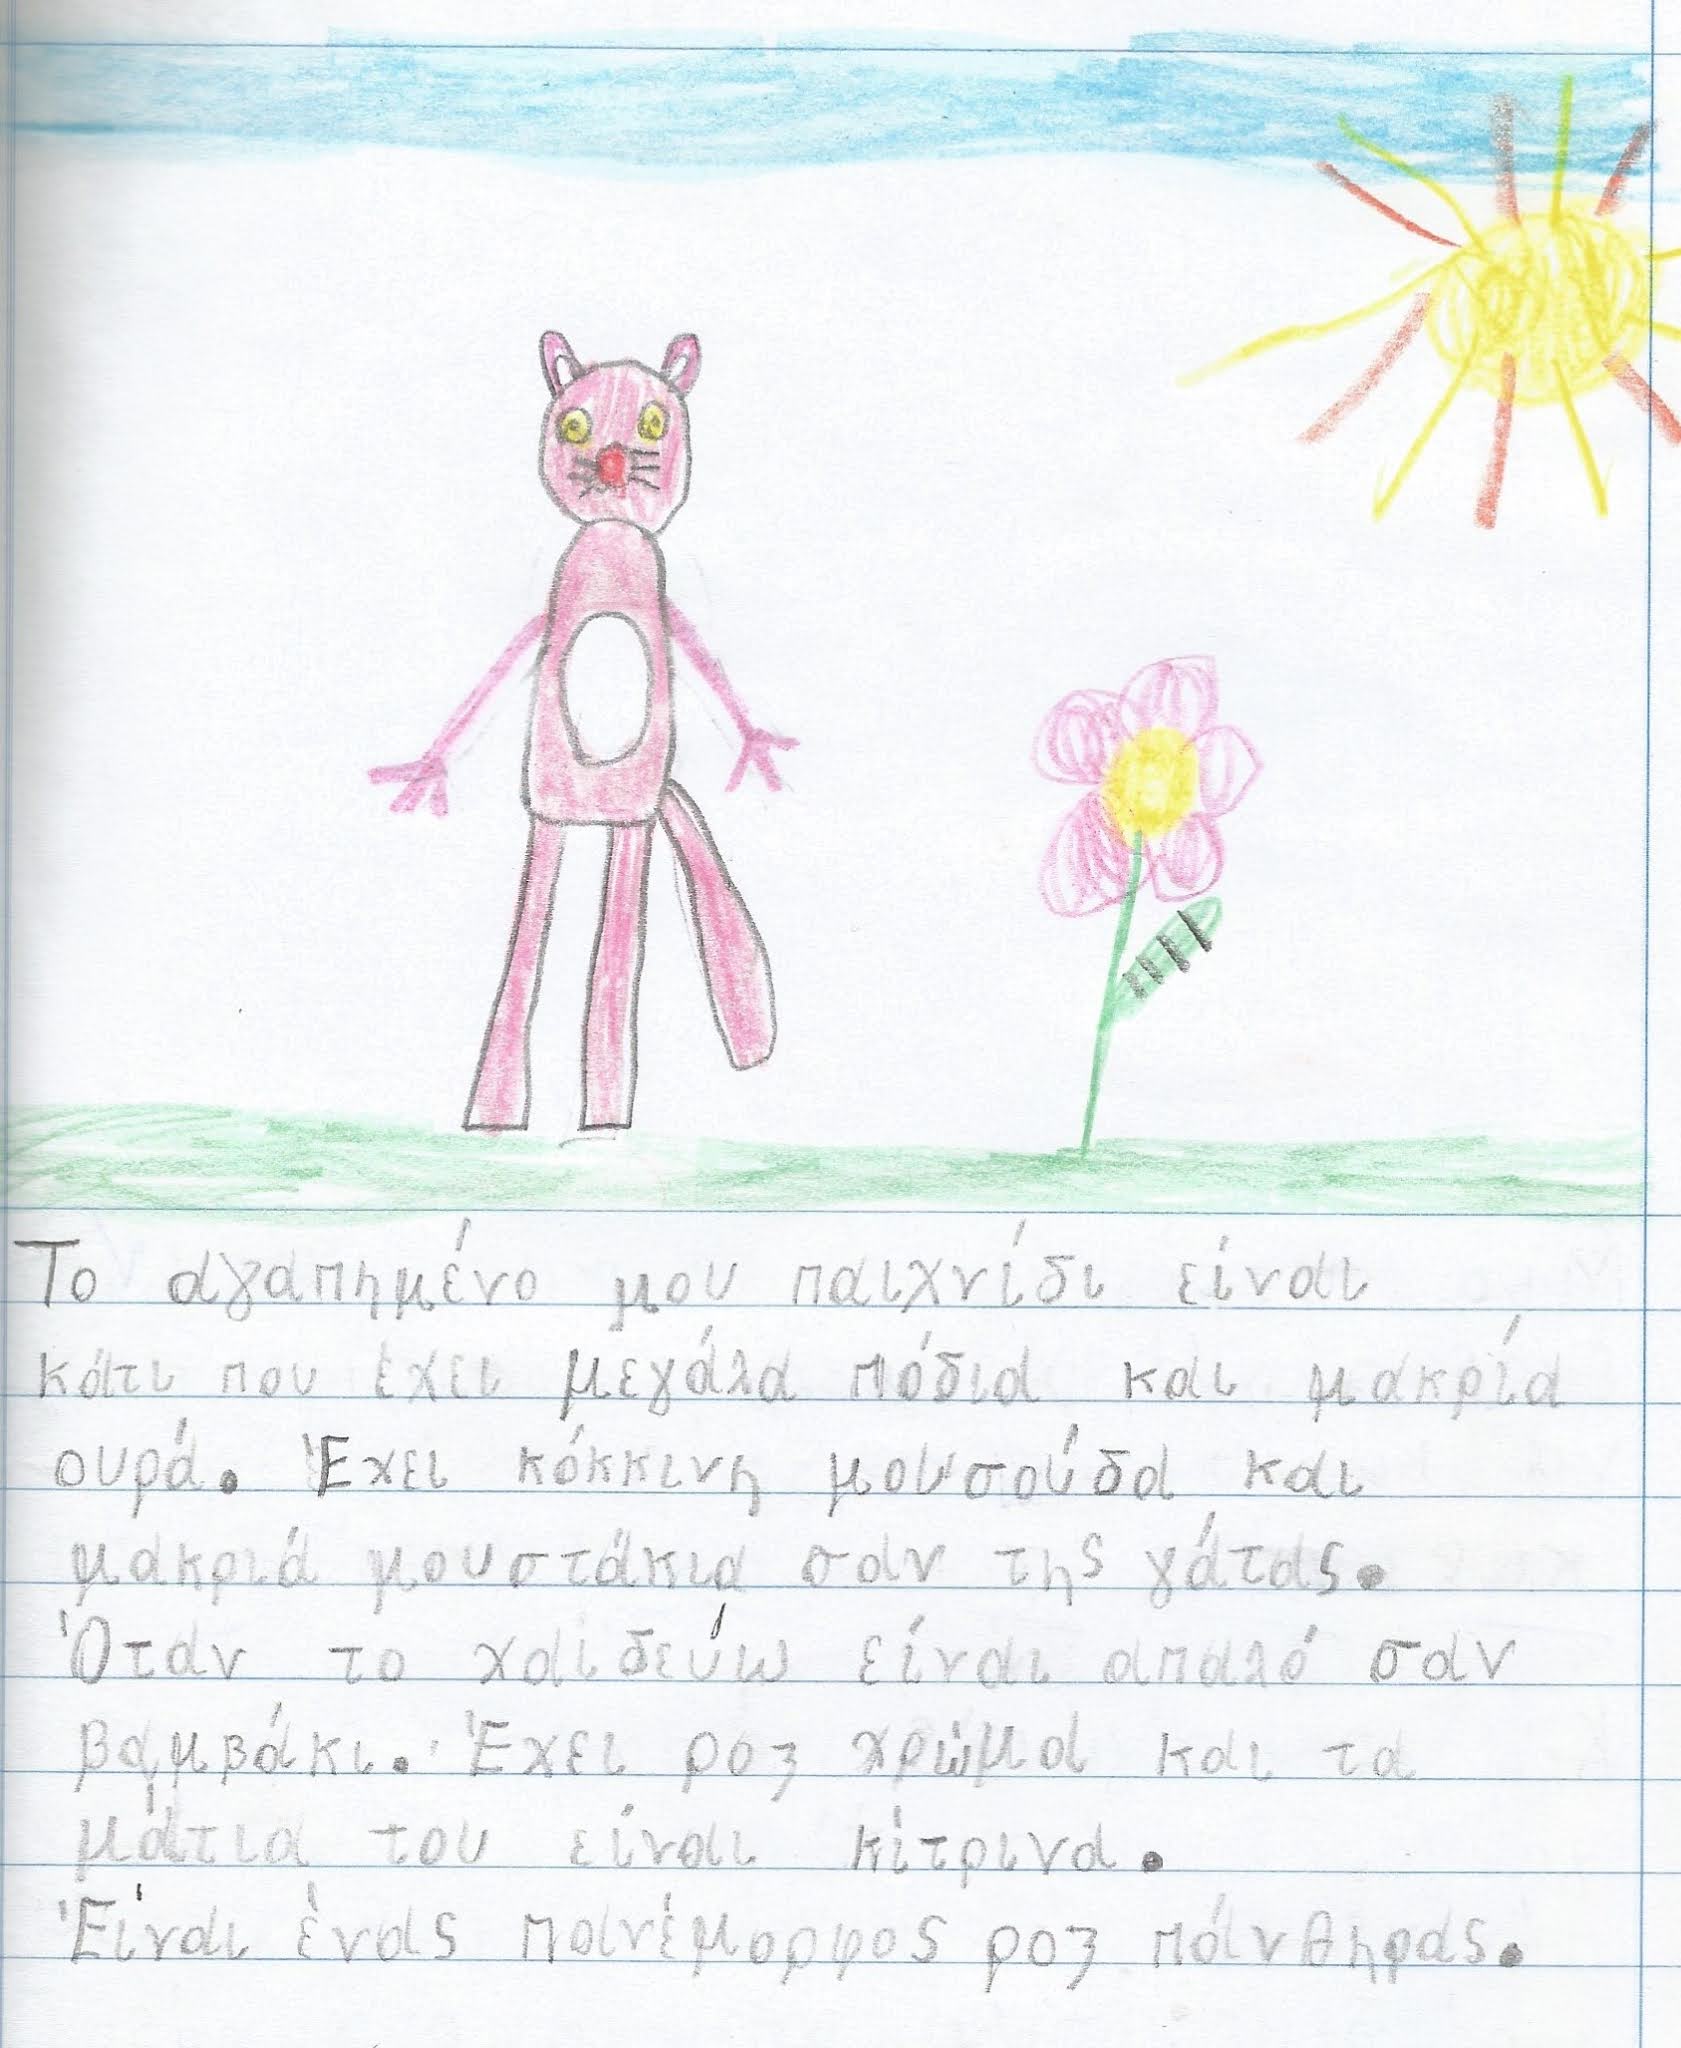 Το αγαπημένο μου παιχνίδι είναι
κάτι που έχει μεγάλα πόδια και μακρία
ουρά. Έχει κόκκινη μουσούδα και
μακριά μουστάκια σαν της γάτας.
Όταν το χαιδεύω είναι απαλό σαν
βαμβάκι. Έχει ροζ χρώμα και τα
μάτια του είναι κίτρινα.
Έίναι ένας πανέμορφος ροζ πάνθηρας.